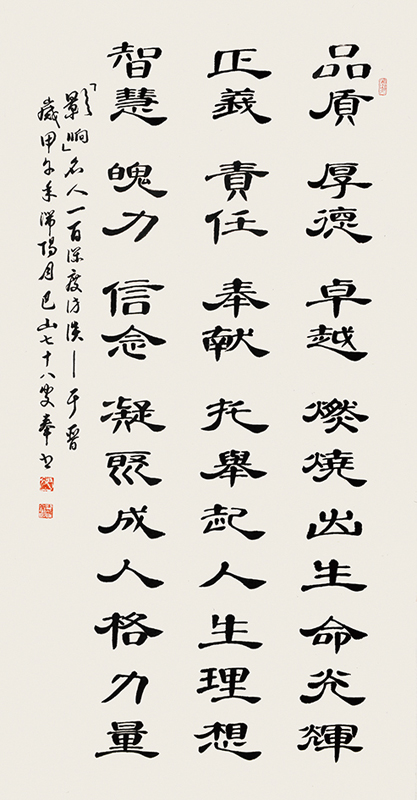 品質 厚德 卓越 燃燒出生命光輝
正義 責任 奉献 托舉起人生理想
智慧 魄力 信念 凝 成人格力量
「影响」名人一百深度访谈——于晋
歲甲午年端陽月巴山七十八叟奉书